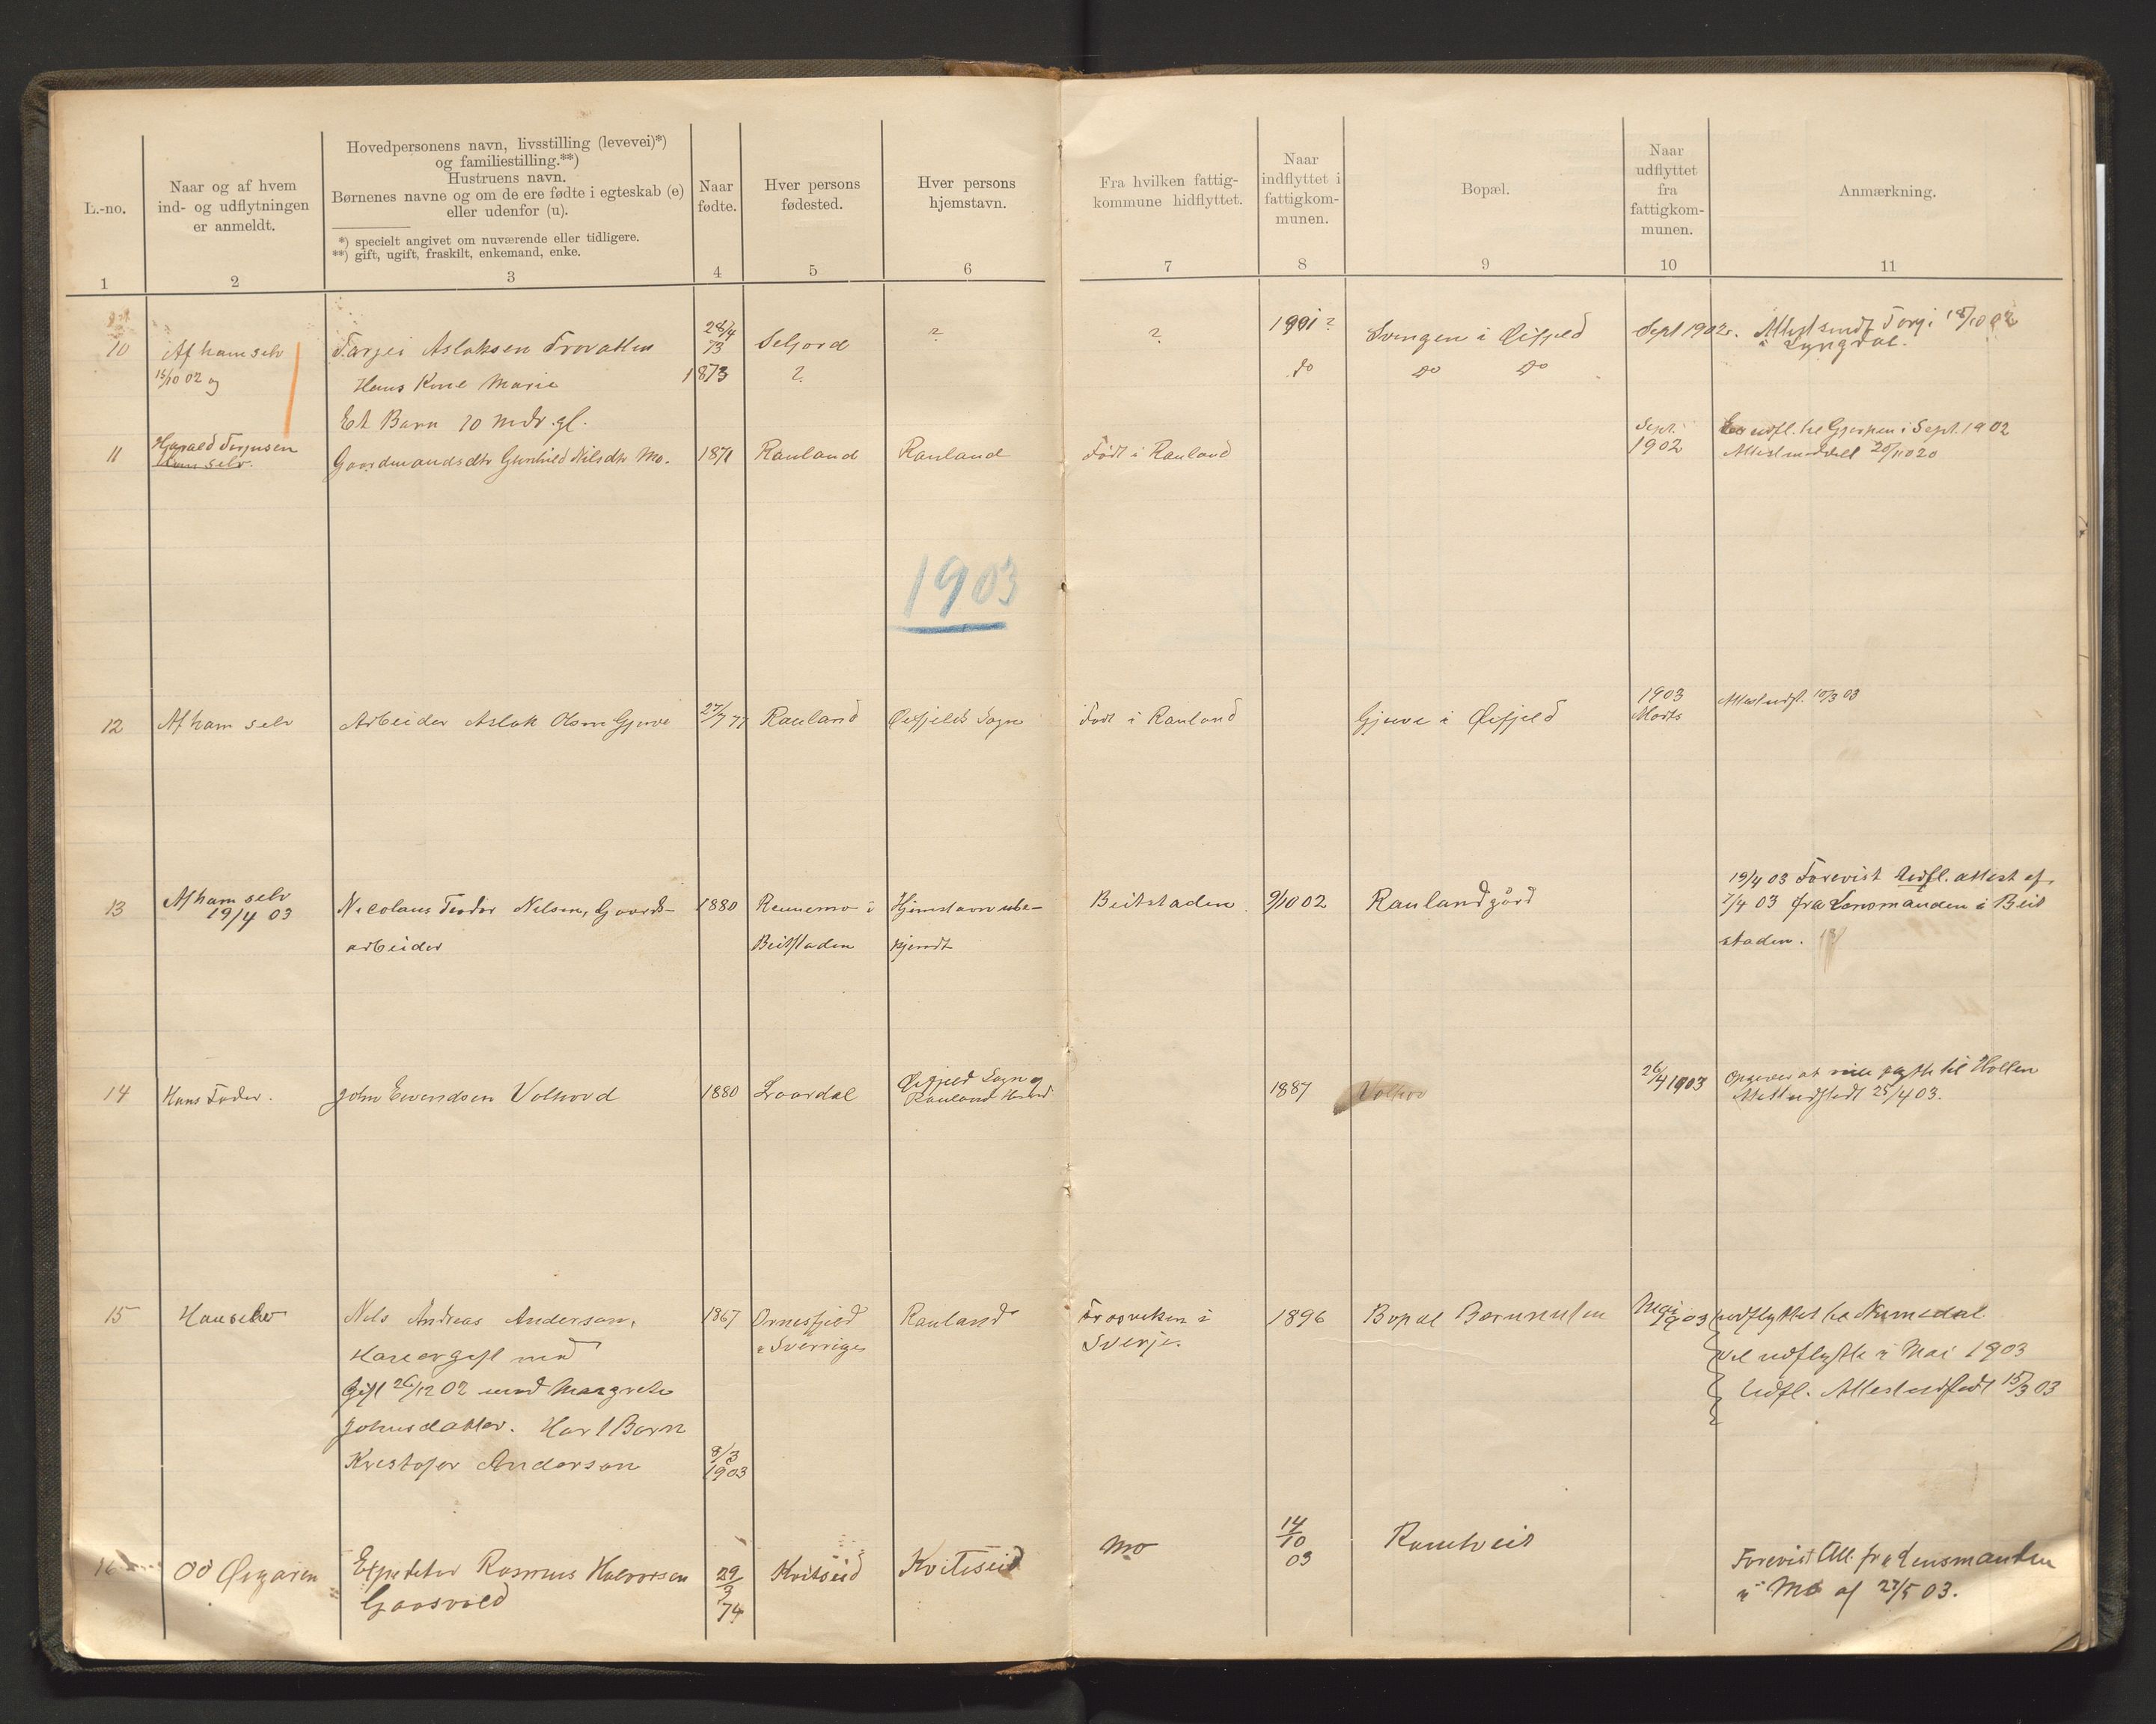 L.-no.
Naar og af hvem
ind- og udflytningen
er anmeldt.
Hovedpersonens navn, livsstilling (levevei)*)
og familiestilling.**)
Hustruens navn.
Børnenes navne og om de ere fødte i egteskab (e)
eller udenfor (u).
*) specielt angivet om nuværende eller tidligere.
**) gift, ugift, fraskilt, enkemand, enke.
Naar
fødte.
Hver persons
fødested.
Hver persons
hjemstavn.
Fra hvilken fattig-
kommune hidflyttet.
Naar
indflyttet i
fattigkom-
munen.
Bopæl.
Naar
udflyttet
fra
fattigkom-
munen.
Anmærkning.
1 2 3 4 5 6 7 8 9 10 11
10 Af ham selv Targei Aslaksen Trovatten 28/4 73 Seljord ? ? 1901? Svingen i Øifjeld Sept 1902. Attest sendt Torgei 18/10 02
i Lyngdal.
15/10 02 og Hans Kone Marie 1873 ? do do do
Et Barn 10 Mdr. gl.
11 Harald Torjusen
Ham selv. Gaardmandsdtr Gunhild Nilsdtr Mo. 1871 Rauland Rauland Født i Rauland Sept.
1902 udfl. til Gjerpen i Sept. 1902
Attest meddelt
1903
12 Af ham selv Arbeider Aslak Olsen Gjuve 27/7 77 Rauland Øifjelds Sogn Født i Rauland Gjuve i Øifjeld 1903
Marts Attest udfl. 10/3 03
13 Af ham selv
19/4 03 Nicolaus Teodor Nilsen, Gaards-
arbeider 1880 Rennemo i
Beitstaden Hjemstavn ube-
kjendt Beitstaden 9/10 02 Raulandgård 19/4 03 Forevist Udfl. attest af
7/4 03 fra Lensmanden i Beit
staden.
14 Hans Fader. John Eivendsen Volhovd 1880 Laardal Øifjeld Sogn og
Rauland Herred 1887 26/4 1903 Opgiver at ville flytte til Hollen
Attest udstedt 25/4 03.
15 Han selv Nils Andreas Anderson,
Gift 26/12 02 med Margrete
Johnsdatter. Har 1 Barn
Kristofer Anderson 8/3
1903
1867 Ornesfjeld
i Sverrige Rauland
Sverje. 1896 Bopæl Mai
1903 udflyttet til Numedal
Vil udflytte i Mai 1903
Udfl. Attest udstedt 15/3 03
16 OO Øygaren Expeditør Rasmus Halvorsen
Gaasvold 29
9
74 Kvitseid Kviteseid Mo 14
10
03 Ramtveit Forevist Att. fra Lensmanden
i Mo af 27/5 03.